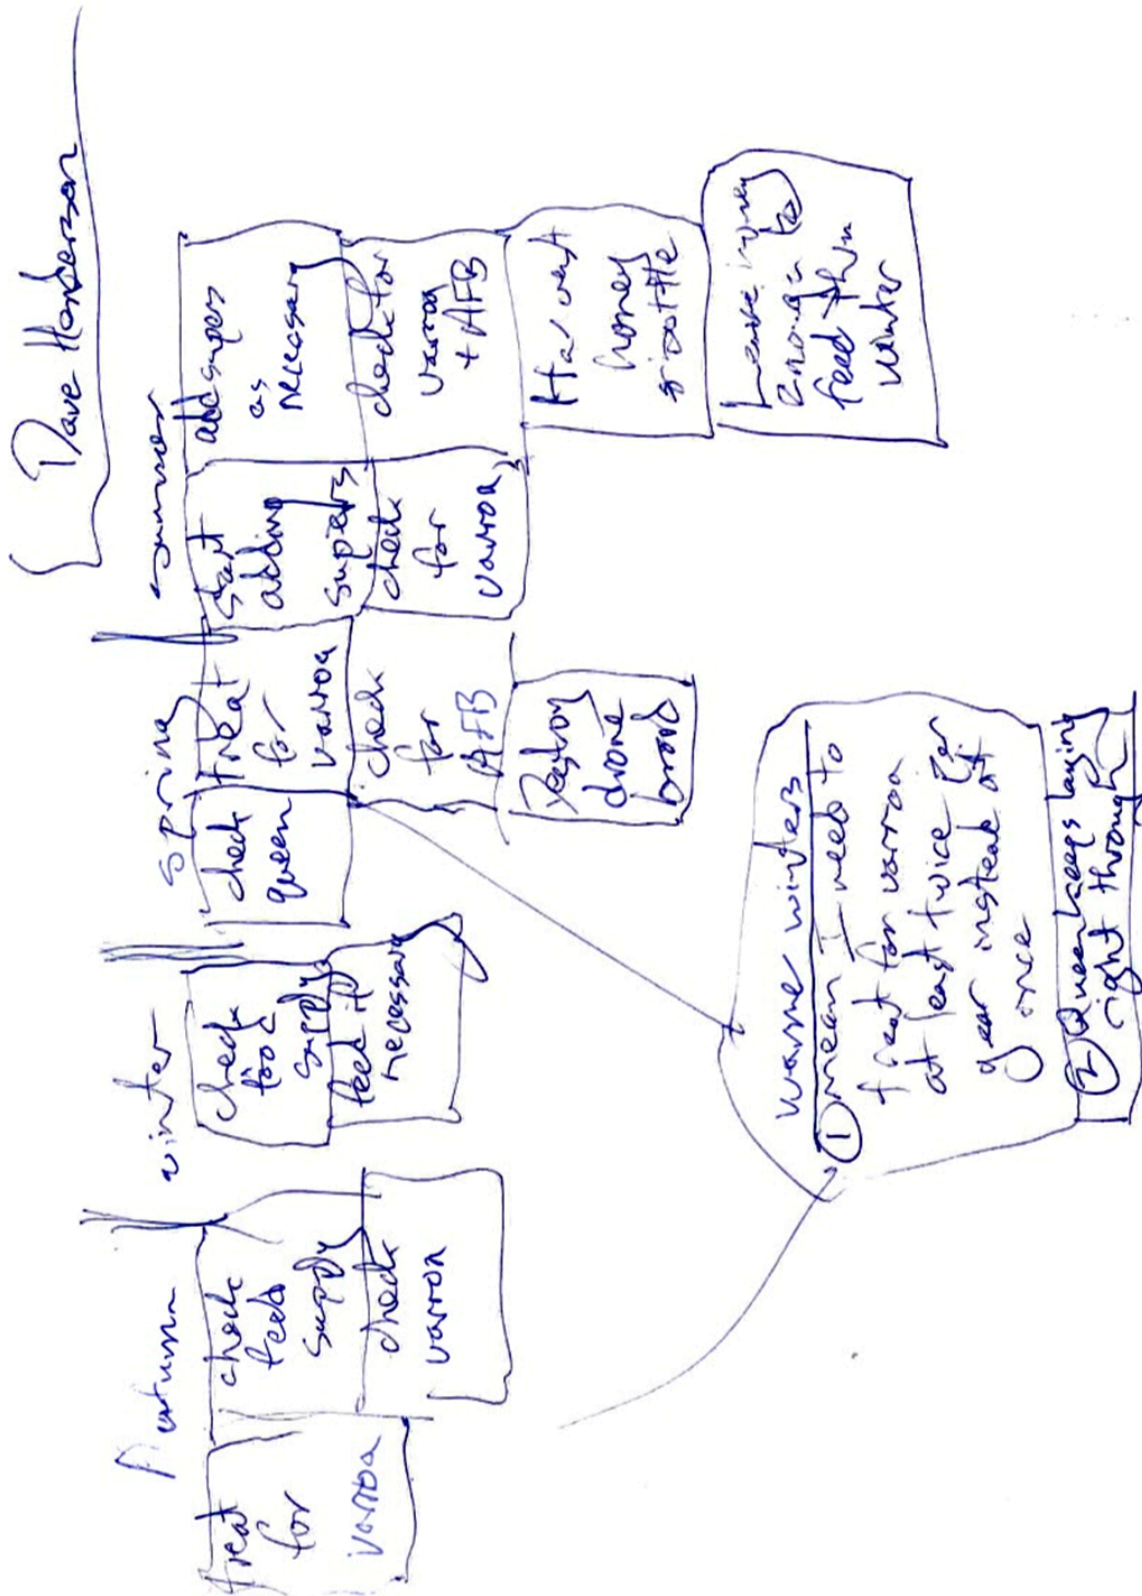 Dave Henderson
Autumn
winter
spring
summer
treat
for
varroa
check
feed
supply
check
varroa
check
food
supply
feed if
necessary
check
queen
treat
for
varroa
check
for
AFB
Destroy
drone
brood
start
adding
supers
check
for
varroa
add supers
as
necessary
check for
varroa
+ AFB
Harvest
honey
Leave
enough to
feed thru
winter
warme winters
① mean I need to
treat for varroa
at least twice per
year instead of
once
② Queen keeps laying
right through